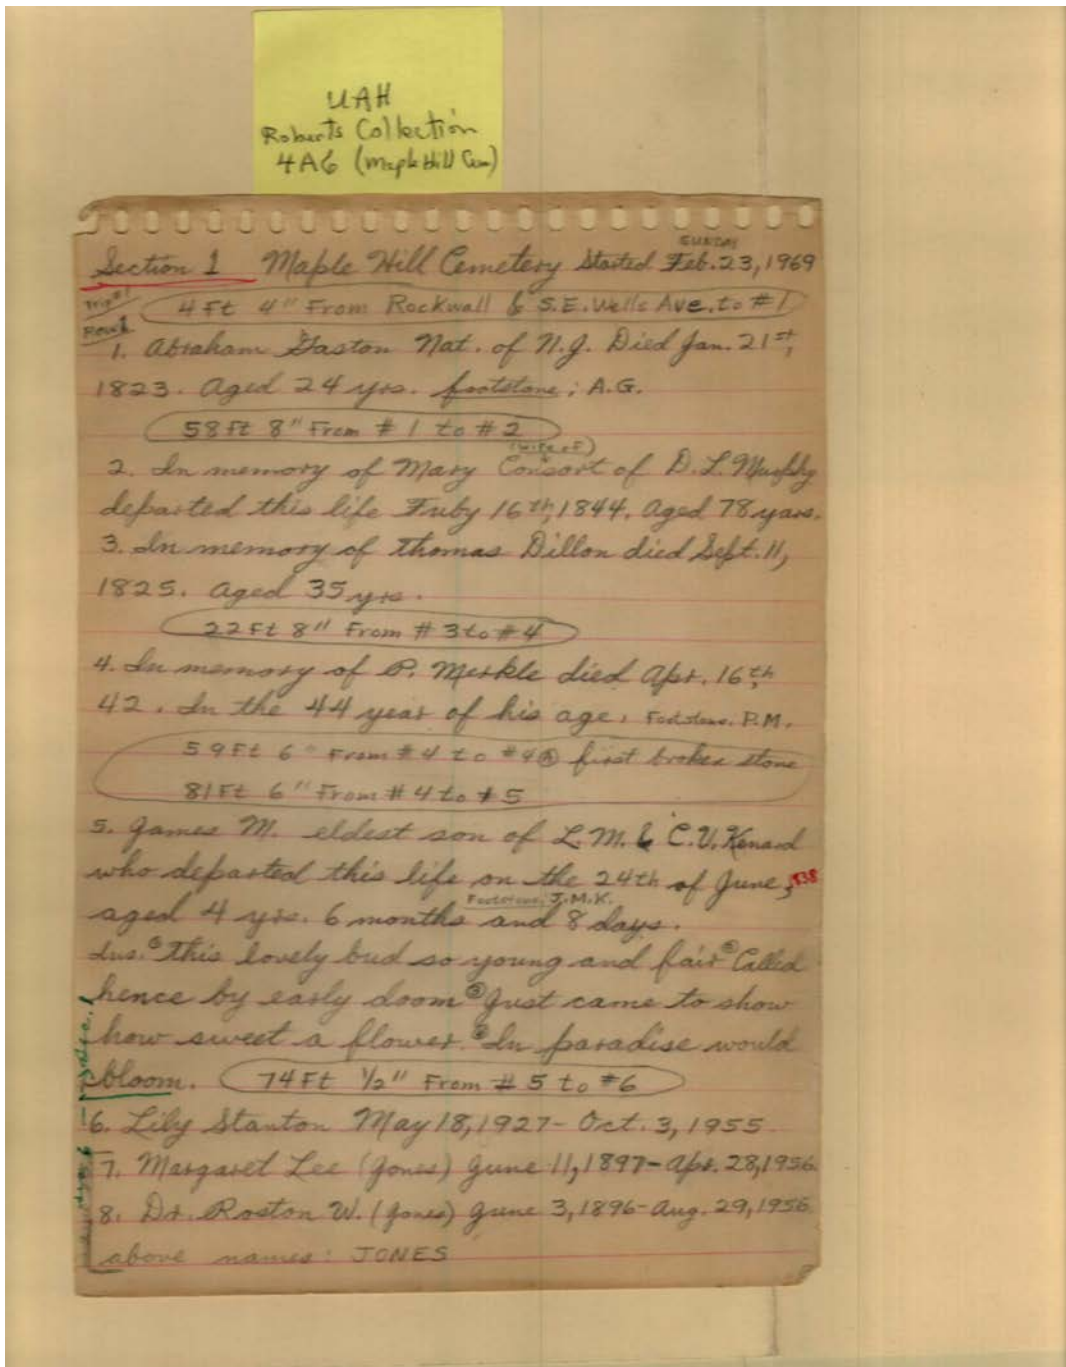 UAH
Roberts Collection
4A6 (Maple Hill Cem)
SUNDAY
Section 1 Maple Hill Cemetery Started Feb. 23, 1969
Trip #1
4 Ft 4" From Rockwall & S.E. Wells Ave. to #1
Row 1
1. Abraham Gaston Nat. of N.J. Died Jan. 21st,
1823. Aged 24 yrs. footstone: A.G.
58 Ft 8" From #1 to #2
(wife of)
2. In memory of Mary Consort of D. L. Murphy
departed this life Fuby 16th, 1844. Aged 78 years.
3. In memory of Thomas Dillon died Sept. 11,
1825. Aged 35 yrs.
22 Ft 8" From #3 to #4
4. In memory of P. Merkle died Apr. 16th,
42. In the 44 year of his age. Footstone. P.M.
59 Ft 6" From #4 to #4Ⓐ first broken stone
81 Ft 6" From #4 to #5
5. James M. eldest son of L.M. & C.V. Kenard
who departed this life on the 24th of June, 838
Footstone, J.M.K.
aged 4 yrs. 6 months and 8 days.
Ins. ①This lovely bud so young and fair ②Called
hence by early doom ③Just came to show
how sweet a flower. ④In paradise would
bloom. 74 Ft 1/2" From #5 to #6
6. Lily Stanton May 18, 1927 - Oct. 3, 1955.
7. Margaret Lee (Jones) June 11, 1897 - Apr. 28, 1956.
8. Dr. Roston W. (Jones) June 3, 1896 - Aug. 29, 1956
above names: JONES